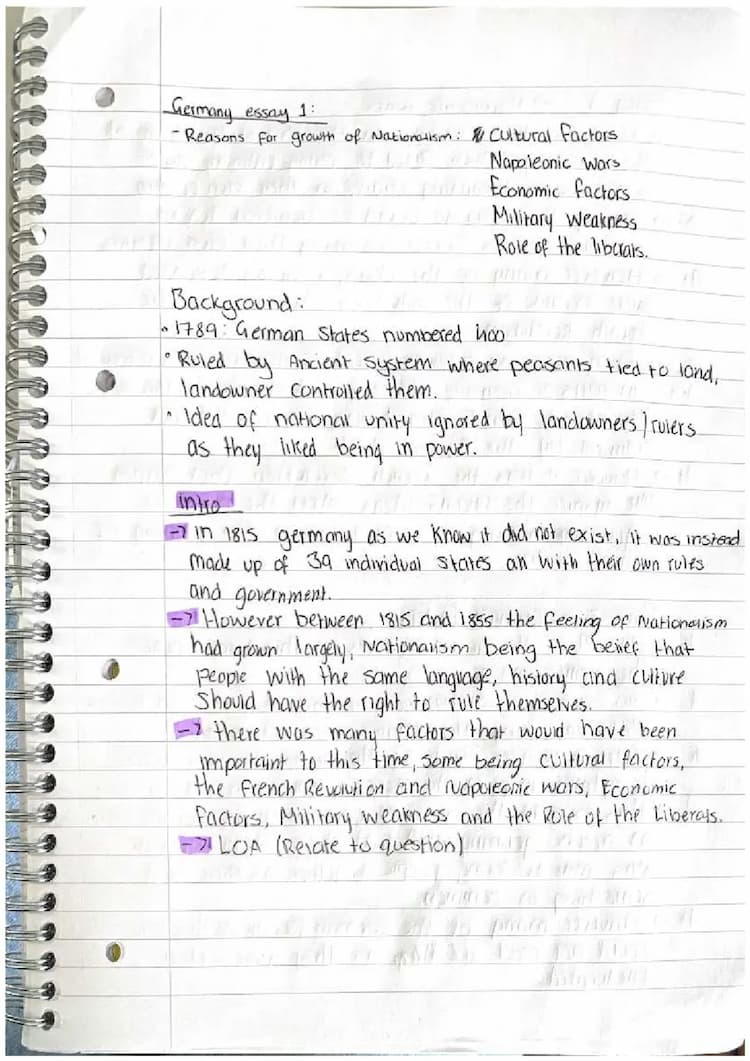 Germany essay 1:
- Reasons for growth of Nationalism: Cultural Factors
Napoleonic wars
Economic factors
Military weakness
Role of the liberals.
Background:
• 1789: German States numbered 400
• Ruled by Ancient System where peasants tied to land,
landowner controlled them.
• Idea of national unity ignored by landowners/rulers
as they liked being in power.
Intro
-> In 1815 germany as we know it did not exist, it was instead
made up of 39 individual states all with their own rules
and government.
-> However between 1815 and 1855 the feeling of Nationalism
had grown largely, Nationalism being the belief that
people with the same language, history and culture
should have the right to rule themselves.
-> there was many factors that would have been
importaint to this time, some being cultural factors,
the French Revolution and Napoleonic wars, Economic
factors, Military weakness and the Role of the Liberals.
-> LOA (Relate to question)